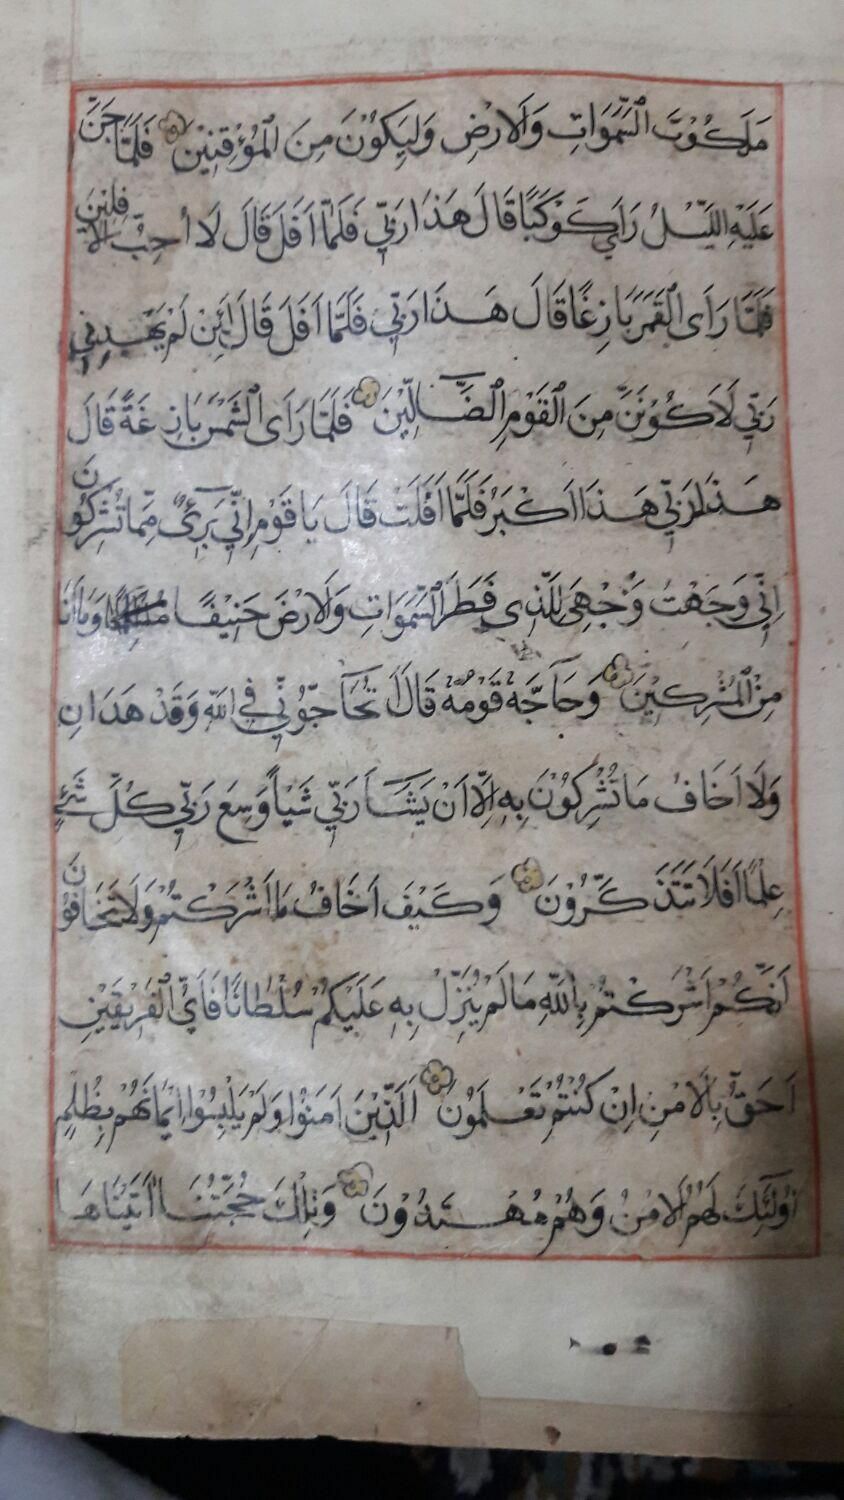 مَلَكُوْتَ السَّمٰوَاتِ وَالاَرْضِ وَلِيَكُوْنَ مِنَ الْمُؤْقِنِيْنَ فَلَمَّا جَنَّ
عَلَيْهِ اللَّيْلُ رَاٰي كَوْكَبًا قَالَ هَذَا رَبِّي فَلَمَّا اَفَلَ قَالَ لَا اُحِبُّ الاٰفِلِيْنَ
فَلَمَّا رَاَى الْقَمَرَ بَازِغًا قَالَ هَذَا رَبِّي فَلَمَّا اَفَلَ قَالَ لَئِنْ لَمْ يَهْدِنِي
رَبِّي لَاَكُوْنَنَّ مِنَ الْقَوْمِ الضَّالِّيْنَ فَلَمَّا رَاَى الشَّمْسَ بَازِغَةً قَالَ
هَذَا رَبِّي هَذَا اَكْبَرُ فَلَمَّا اَفَلَتْ قَالَ يَا قَوْمِ اِنِّي بَرِئٌ مِمَّا تُشْرِكُوْنَ
اِنِّي وَجَهْتُ وَجْهِيَ لِلَّذِي فَطَرَ السَّمٰوَاتِ وَالاَرْضَ حَنِيْفًا وَمَا اَنَا
مِنَ الْمُشْرِكِيْنَ وَحَاَجَّهُ قَوْمُهُ قَالَ تُحَاَجُّوْنِّي فِي اللّٰهِ وَقَدْ هَدَانِ
وَلَا اَخَافُ مَا تُشْرِكُوْنَ بِهِ اِلَّا اَنْ يَشَاَ رَبِّي شَيْاً وَسِعَ رَبِّي كُلَّ شَيْءٍ
عِلْمًا اَفَلَا تَتَذَكَّرُوْنَ وَكَيْفَ اَخَافُ مَا اَشْرَكْتُمْ وَلَا تَخَافُوْنَ
اَنَّكُمْ اَشْرَكْتُمْ بِاللّٰهِ مَا لَمْ يُنَزِّلْ بِهِ عَلَيْكُمْ سُلْطَانًا فَاَيُّ الْفَرِيْقَيْنِ
اَحَقُّ بِالْاَمْنِ اِنْ كُنْتُمْ تَعْلَمُوْنَ اَلَّذِيْنَ اٰمَنُوْا وَلَمْ يَلْبِسُوْا اِيْمَانَهُمْ بِظُلْمٍ
اُولَئِكَ لَهُمُ الاَمْنُ وَهُمْ مُهْتَدُوْنَ وَتِلْكَ حُجَّتُنَا اٰتَيْنَاهَا